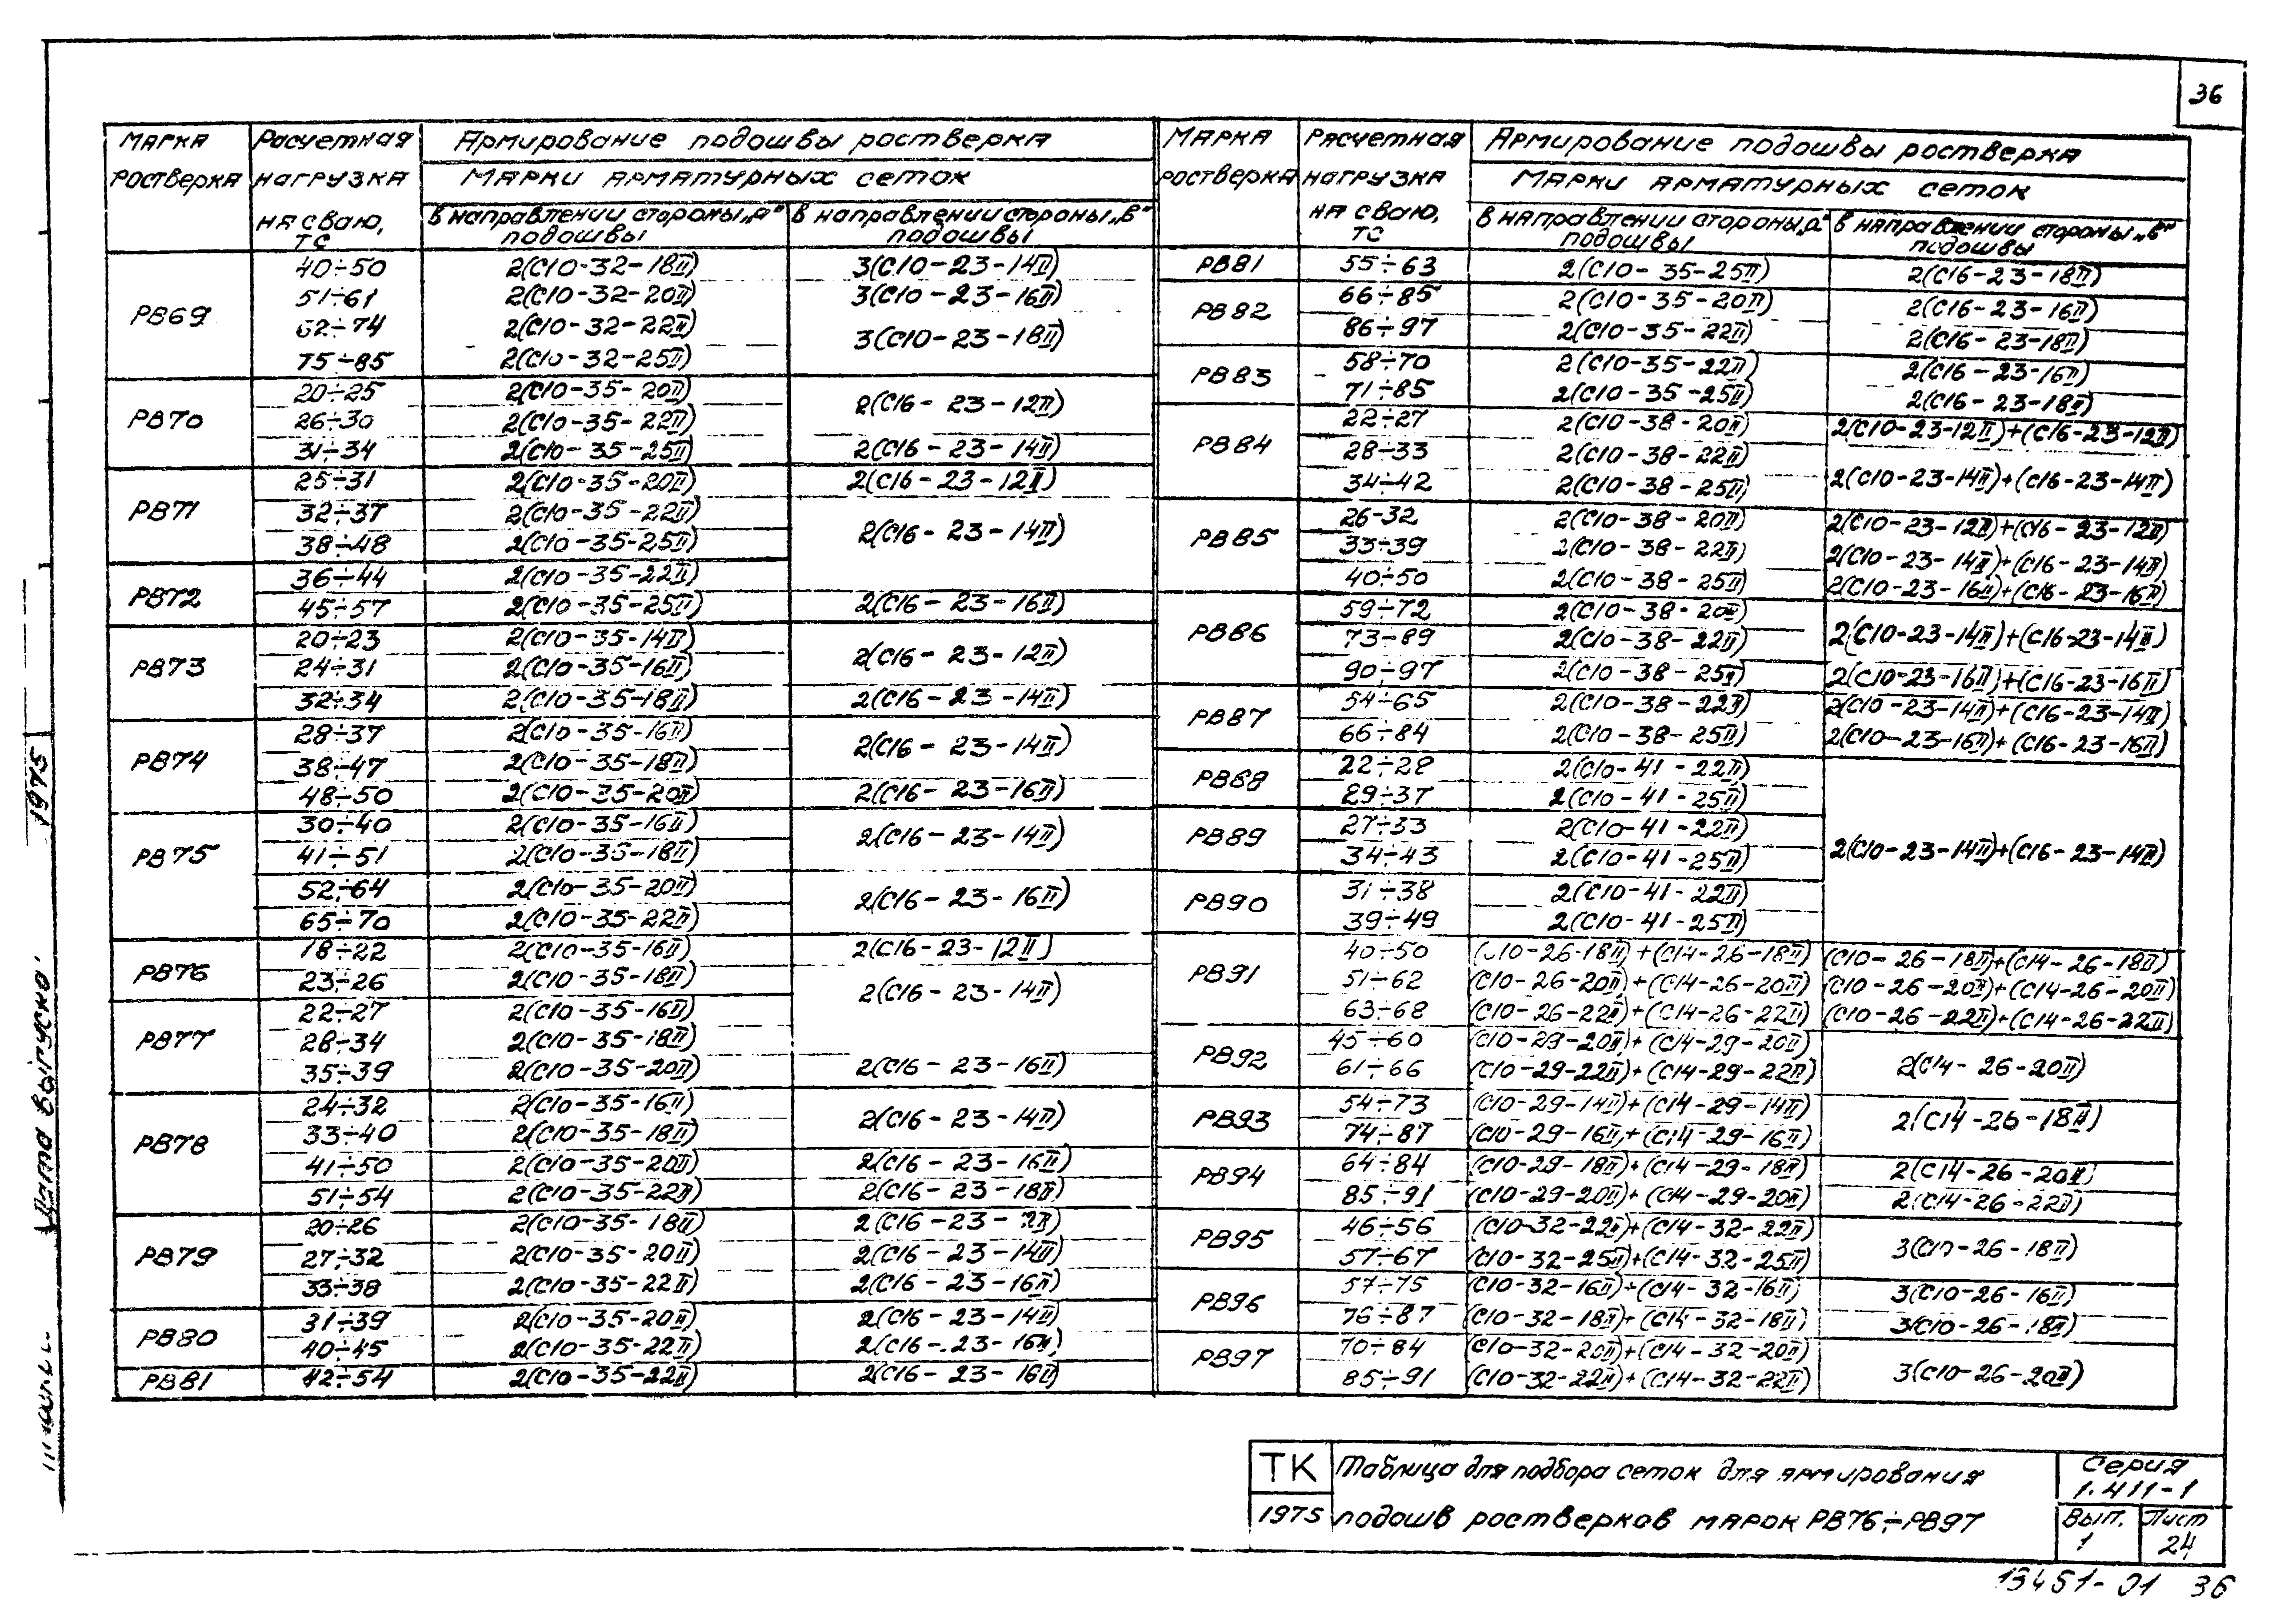 36
Марка ростверка | Расчетная нагрузка на сваю, тс | Армирование подошвы ростверка
Марки арматурных сеток
в направлении стороны „а" подошвы | в направлении стороны „в" подошвы
РВ69
40÷50 | 2(С10-32-18II) | 3(С10-23-14II)
51÷61 | 2(С10-32-20II) | 3(С10-23-16II)
62÷74 | 2(С10-32-22II) | 3(С10-23-18II)
75÷85 | 2(С10-32-25II)
РВ70
20÷25 | 2(С10-35-20II) | 2(С16-23-12II)
26÷30 | 2(С10-35-22II)
31÷34 | 2(С10-35-25II) | 2(С16-23-14II)
РВ71
25÷31 | 2(С10-35-20II) | 2(С16-23-12II)
32÷37 | 2(С10-35-22II) | 2(С16-23-14II)
38÷48 | 2(С10-35-25II)
РВ72
36÷44 | 2(С10-35-22II)
45÷57 | 2(С10-35-25II) | 2(С16-23-16II)
РВ73
20÷23 | 2(С10-35-14II) | 2(С16-23-12II)
24÷31 | 2(С10-35-16II)
32÷34 | 2(С10-35-18II) | 2(С16-23-14II)
РВ74
28÷37 | 2(С10-35-16II) | 2(С16-23-14II)
38÷47 | 2(С10-35-18II)
48÷50 | 2(С10-35-20II) | 2(С16-23-16II)
РВ75
30÷40 | 2(С10-35-16II) | 2(С16-23-14II)
41÷51 | 2(С10-35-18II)
52÷64 | 2(С10-35-20II) | 2(С16-23-16II)
65÷70 | 2(С10-35-22II)
РВ76
18÷22 | 2(С10-35-16II) | 2(С16-23-12II)
23÷26 | 2(С10-35-18II) | 2(С16-23-14II)
РВ77
22÷27 | 2(С10-35-16II)
28÷34 | 2(С10-35-18II)
35÷39 | 2(С10-35-20II) | 2(С16-23-16II)
РВ78
24÷32 | 2(С10-35-16II) | 2(С16-23-14II)
33÷40 | 2(С10-35-18II)
41÷50 | 2(С10-35-20II) | 2(С16-23-16II)
51÷54 | 2(С10-35-22II) | 2(С16-23-18II)
РВ79
20÷26 | 2(С10-35-18II) | 2(С16-23-
27÷32 | 2(С10-35-20II) | 2(С16-23-14II)
33÷38 | 2(С10-35-22II) | 2(С16-23-16II)
РВ80
31÷39 | 2(С10-35-20II) | 2(С16-23-14II)
40÷45 | 2(С10-35-22II) | 2(С16-23-16II)
РВ81
42÷54 | 2(С10-35-22II) | 2(С16-23-16II)
Марка ростверка | Расчетная нагрузка на сваю, тс | Армирование подошвы ростверка
Марки арматурных сеток
в направлении стороны „а" подошвы | в направлении стороны „в" подошвы
РВ81
55÷63 | 2(С10-35-25II) | 2(С16-23-18II)
РВ82
66÷85 | 2(С10-35-20II) | 2(С16-23-16II)
86÷97 | 2(С10-35-22II) | 2(С16-23-18II)
РВ83
58÷70 | 2(С10-35-22II) | 2(С16-23-16II)
71÷85 | 2(С10-35-25II) | 2(С16-23-18II)
РВ84
22÷27 | 2(С10-38-20II) | 2(С10-23-12II)+(С16-23-12II)
28÷33 | 2(С10-38-22II) | 2(С10-23-14II)+(С16-23-14II)
34÷42 | 2(С10-38-25II)
РВ85
26-32 | 2(С10-38-20II) | 2(С10-23-12II)+(С16-23-12II)
33÷39 | 2(С10-38-22II) | 2(С10-23-14II)+(С16-23-14II)
40÷50 | 2(С10-38-25II) | 2(С10-23-16II)+(С16-23-16II)
РВ86
59÷72 | 2(С10-38-20II) | 2(С10-23-14II)+(С16-23-14II)
73÷89 | 2(С10-38-22II)
90÷97 | 2(С10-38-25II) | 2(С10-23-16II)+(С16-23-16II)
РВ87
54÷65 | 2(С10-38-22II) | 2(С10-23-14II)+(С16-23-14II)
66÷84 | 2(С10-38-25II) | 2(С10-23-16II)+(С16-23-16II)
РВ88
22÷28 | 2(С10-41-22II) | 2(С10-23-14II)+(С16-23-14II)
29÷37 | 2(С10-41-25II)
РВ89
27÷33 | 2(С10-41-22II)
34÷43 | 2(С10-41-25II)
РВ90
31÷38 | 2(С10-41-22II)
39÷49 | 2(С10-41-25II)
РВ91
40÷50 | (С10-26-18II)+(С14-26-18II) | (С10-26-18II)+(С14-26-18II)
51÷62 | (С10-26-20II)+(С14-26-20II) | (С10-26-20II)+(С14-26-20II)
63÷68 | (С10-26-22II)+(С14-26-22II) | (С10-26-22II)+(С14-26-22II)
РВ92
45÷60 | (С10-29-20II)+(С14-29-20II) | 2(С14-26-20II)
61÷66 | (С10-29-22II)+(С14-29-22II)
РВ93
54÷73 | (С10-29-14II)+(С14-29-14II) | 2(С14-26-18II)
74÷87 | (С10-29-16II)+(С14-29-16II)
РВ94
64÷84 | (С10-29-18II)+(С14-29-18II) | 2(С14-26-20II)
85÷91 | (С10-29-20II)+(С14-29-20II) | 2(С14-26-22II)
РВ95
46÷56 | (С10-32-22II)+(С14-32-22II) | 3(С10-26-18II)
57÷67 | (С10-32-25II)+(С14-32-25II)
РВ96
57÷75 | (С10-32-16II)+(С14-32-16II) | 3(С10-26-16II)
76÷87 | (С10-32-18II)+(С14-32-18II) | 3(С10-26-18II)
РВ97
70÷84 | (С10-32-20II)+(С14-32-20II) | 3(С10-26-20II)
85÷91 | (С10-32-22II)+(С14-32-22II)
Дата выпуска 1975
ТК
1975
Таблица для подбора сеток для армирования
подошв ростверков марок РВ76÷РВ97
Серия
1.411-1
Вып.
1
Лист
24
13451-01 36